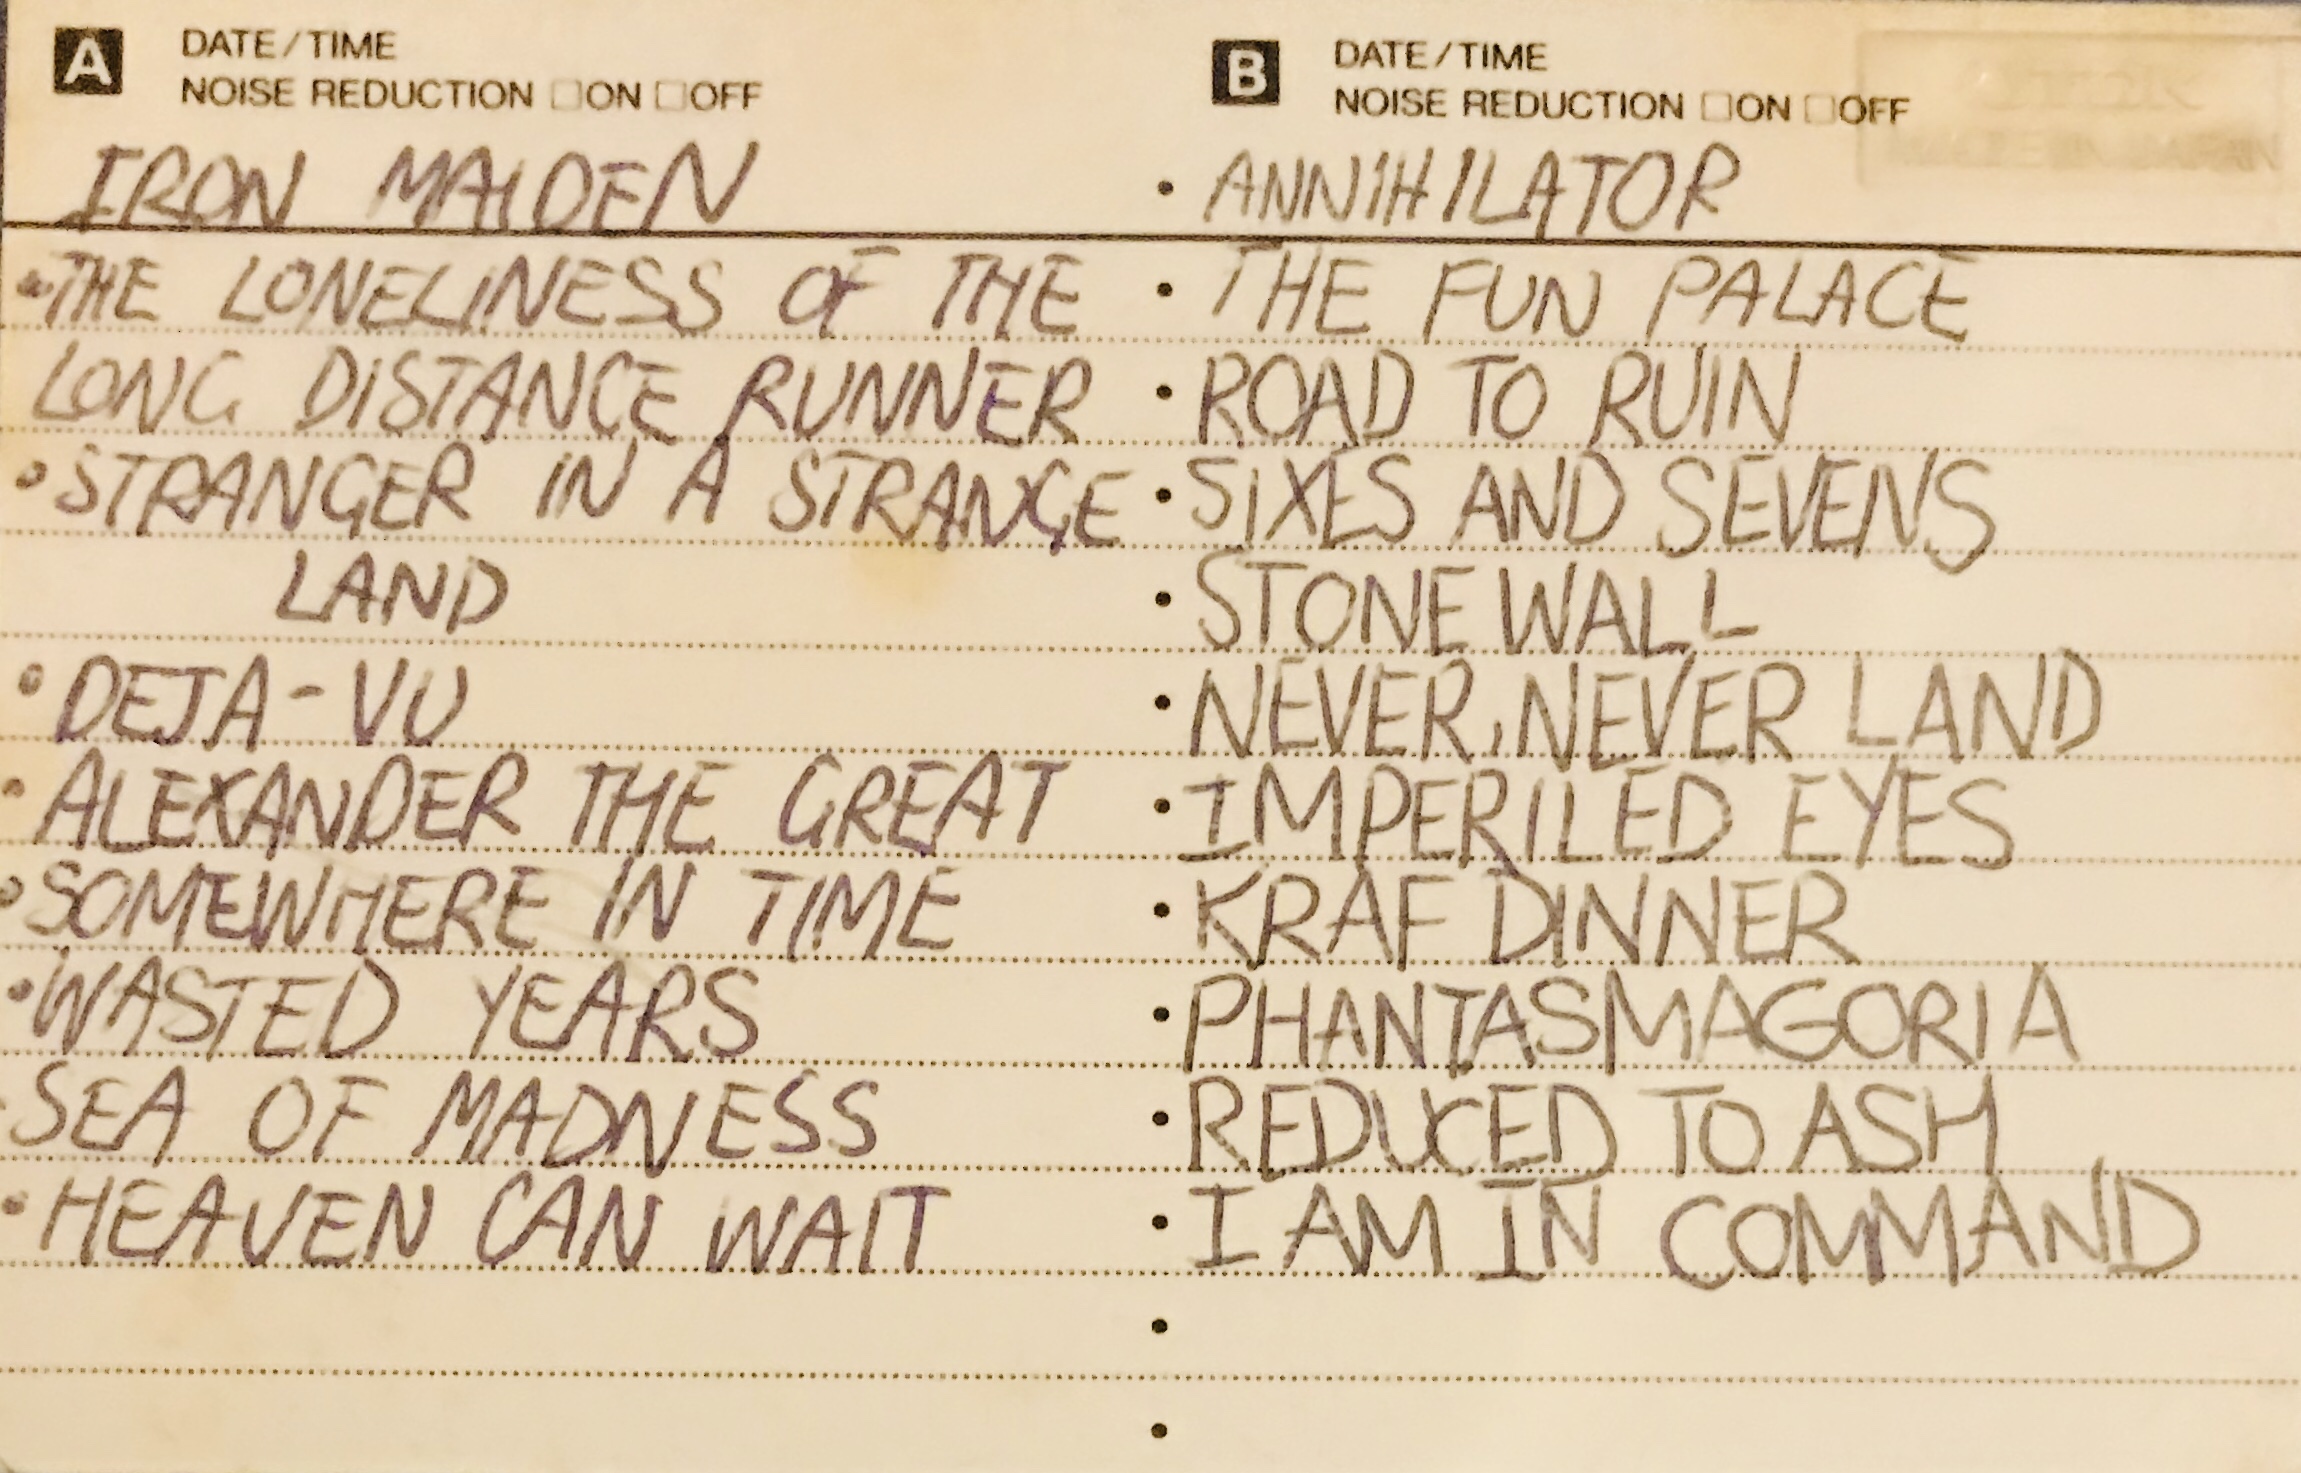 A DATE/TIME
NOISE REDUCTION □ON □OFF
IRON MAIDEN
•THE LONELINESS OF THE
LONG DISTANCE RUNNER
•STRANGER IN A STRANGE
LAND
•DEJA-VU
•ALEXANDER THE GREAT
•SOMEWHERE IN TIME
•WASTED YEARS
SEA OF MADNESS
•HEAVEN CAN WAIT
B DATE/TIME
NOISE REDUCTION □ON □OFF
• ANNIHILATOR
• THE FUN PALACE
• ROAD TO RUIN
• SIXES AND SEVENS
• STONEWALL
• NEVER, NEVER LAND
• IMPERILED EYES
• KRAF DINNER
• PHANTASMAGORIA
• REDUCED TO ASH
• I AM IN COMMAND